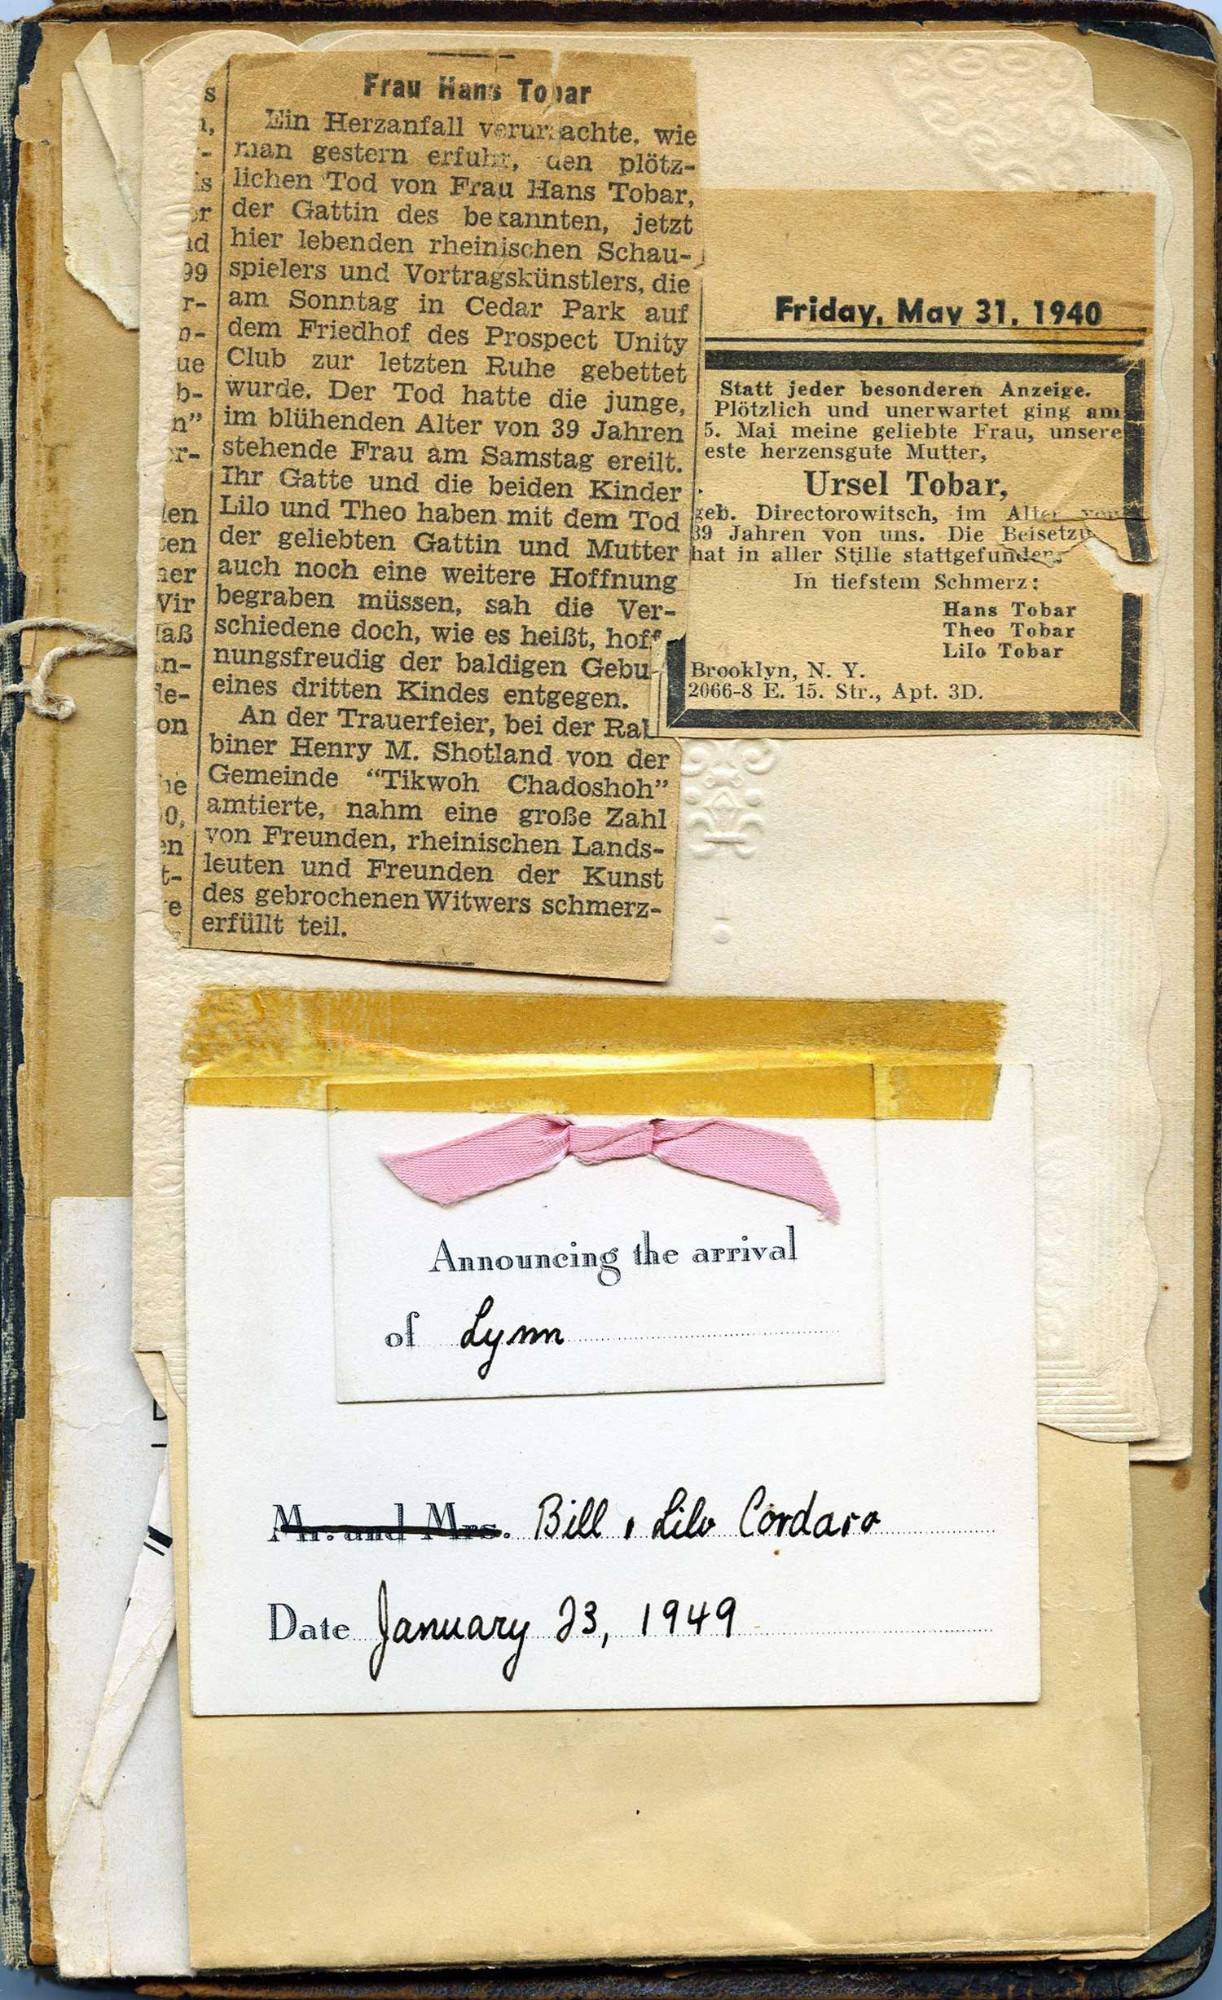 Frau Hans Tobar
Ein Herzanfall verursachte, wie
man gestern erfuhr, den plötz-
lichen Tod von Frau Hans Tobar,
der Gattin des bekannten, jetzt
hier lebenden rheinischen Schau-
spielers und Vortragskünstlers, die
am Sonntag in Cedar Park auf
dem Friedhof des Prospect Unity
Club zur letzten Ruhe gebettet
wurde. Der Tod hatte die junge,
im blühenden Alter von 39 Jahren
stehende Frau am Samstag ereilt.
Ihr Gatte und die beiden Kinder
Lilo und Theo haben mit dem Tod
der geliebten Gattin und Mutter
auch noch eine weitere Hoffnung
begraben müssen, sah die Ver-
schiedene doch, wie es heißt, hoff
nungsfreudig der baldigen Gebu
eines dritten Kindes entgegen.
An der Trauerfeier, bei der Rab
biner Henry M. Shotland von der
Gemeinde "Tikwoh Chadoshoh"
amtierte, nahm eine große Zahl
von Freunden, rheinischen Lands-
leuten und Freunden der Kunst
des gebrochenen Witwers schmerz-
erfüllt teil.
Friday, May 31, 1940
Statt jeder besonderen Anzeige.
Plötzlich und unerwartet ging am
5. Mai meine geliebte Frau, unsere
este herzensgute Mutter,
Ursel Tobar,
geb. Directorowitsch, im Alter von
39 Jahren von uns. Die Beisetzu
hat in aller Stille stattgefunden.
In tiefstem Schmerz:
Hans Tobar
Theo Tobar
Lilo Tobar
Brooklyn, N. Y.
2066-8 E. 15. Str., Apt. 3D.
Announcing the arrival
of Lynn
Mr. and Mrs. Bill & Lilo Cordaro
Date January 23, 1949